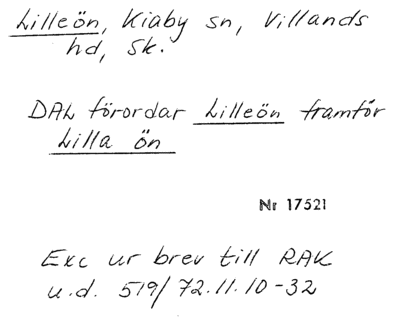 Lilleön, Kiaby sn, Villands
hd, Sk.
DAL förordar Lilleön framför
Lilla ön
Nr 17521
Exc ur brev till RAK
u.d. 519/72.11.10-32